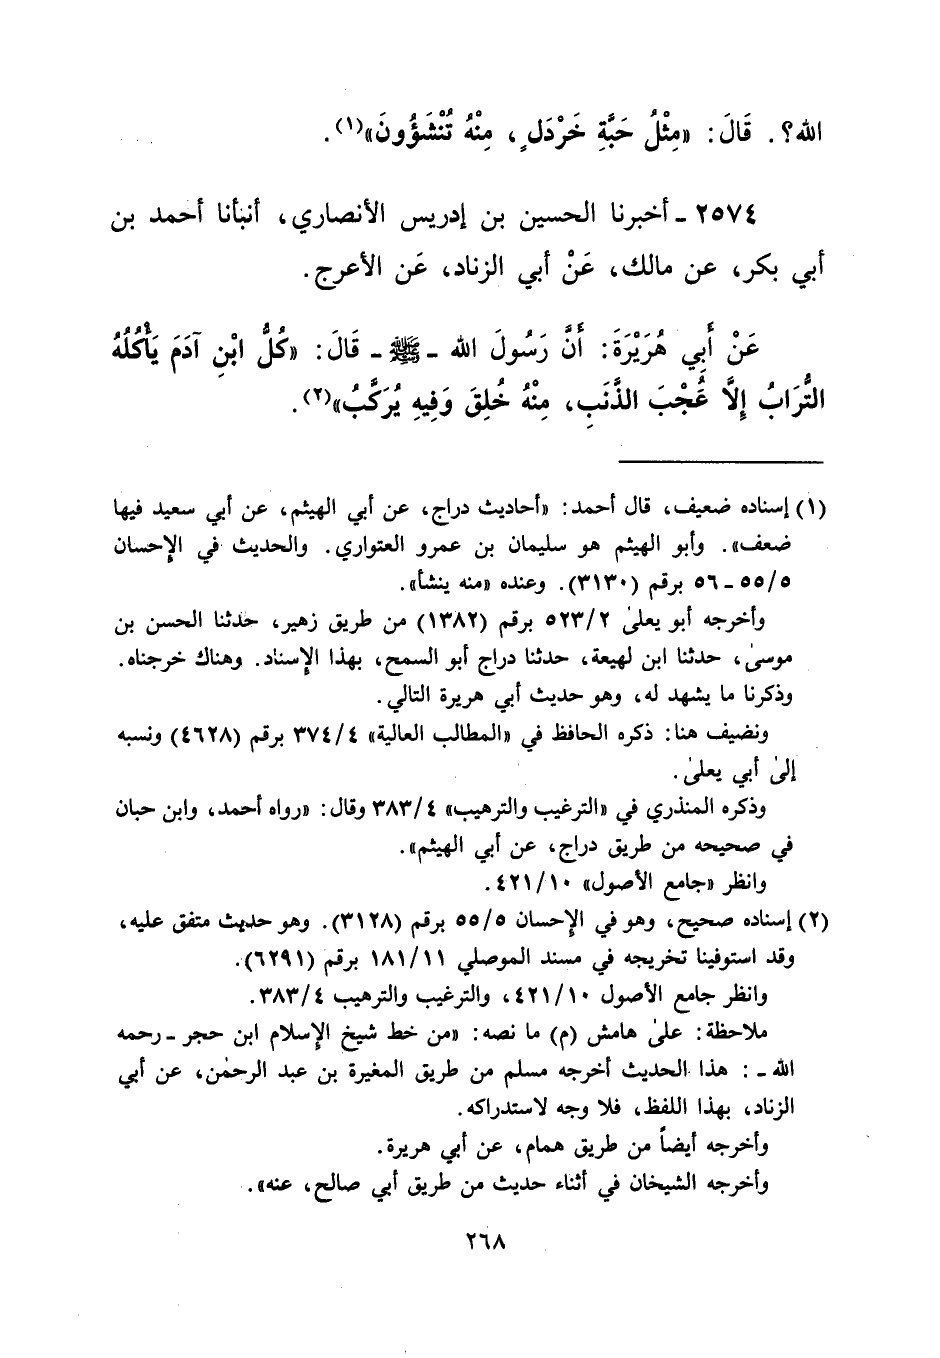 الله؟. قَالَ: «مِثْلُ حَبَّةِ خَرْدَلٍ، مِنْهُ تُنْشَؤُونَ»(١).
٢٥٧٤ ـ أخبرنا الحسين بن إدريس الأنصاري، أنبأنا أحمد بن
أبي بكر، عن مالك، عَنْ أبي الزناد، عَن الأعرج.
عَنْ أَبِي هُرَيْرَةَ: أَنَّ رَسُولَ الله ـ ﷺ ـ قَالَ: «كُلُّ ابْنِ آدَمَ يَأْكُلُهُ
التُّرَابُ إِلاَّ عُجْبَ الذَّنَبِ، مِنْهُ خُلِقَ وَفِيهِ يُرَكَّبُ»(٢).
(١) إسناده ضعيف، قال أحمد: «أحاديث دراج، عن أبي الهيثم، عن أبي سعيد فيها
ضعف». وأبو الهيثم هو سليمان بن عمرو العتواري. والحديث في الإحسان
٥/٥٥ ـ ٥٦ برقم (٣١٣٠). وعنده «منه ينشأ».
وأخرجه أبو يعلىٰ ٥٢٣/٢ برقم (١٣٨٢) من طريق زهير، حدثنا الحسن بن
موسىٰ، حدثنا ابن لهيعة، حدثنا دراج أبو السمح، بهذا الإسناد. وهناك خرجناه.
وذكرنا ما يشهد له، وهو حديث أبي هريرة التالي.
ونضيف هنا: ذكره الحافظ في «المطالب العالية» ٣٧٤/٤ برقم (٤٦٢٨) ونسبه
إلىٰ أبي يعلىٰ.
وذكره المنذري في «الترغيب والترهيب» ٣٨٣/٤ وقال: «رواه أحمد، وابن حبان
في صحيحه من طريق دراج، عن أبي الهيثم».
وانظر «جامع الأصول» ٤٢١/١٠.
(٢) إسناده صحيح، وهو في الإحسان ٥٥/٥ برقم (٣١٢٨). وهو حديث متفق عليه،
وقد استوفينا تخريجه في مسند الموصلي ١٨١/١١ برقم (٦٢٩١).
وانظر جامع الأصول ٤٢١/١٠، والترغيب والترهيب ٣٨٣/٤.
ملاحظة: علىٰ هامش (م) ما نصه: «من خط شيخ الإسلام ابن حجر ـ رحمه
الله ـ: هذا الحديث أخرجه مسلم من طريق المغيرة بن عبد الرحمٰن، عن أبي
الزناد، بهذا اللفظ، فلا وجه لاستدراكه.
وأخرجه أيضاً من طريق همام، عن أبي هريرة.
وأخرجه الشيخان في أثناء حديث من طريق أبي صالح، عنه».
٢٦٨